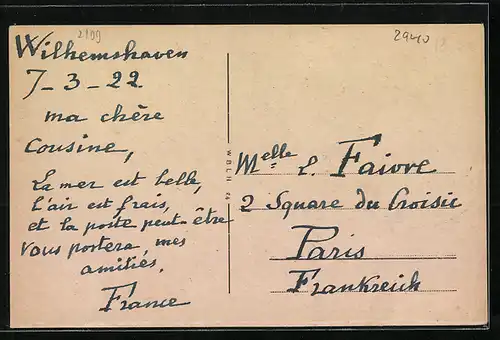 2199
2940
Wilhemshaven
7-3-22
ma chère
Cousine,
La mer est belle,
l'air est frais,
et la poste peut-être
vous portera, mes
amitiés.
France
W.B.L.H.
Melle L. Faivre
2 Square du Croisic
Paris
Frankreich